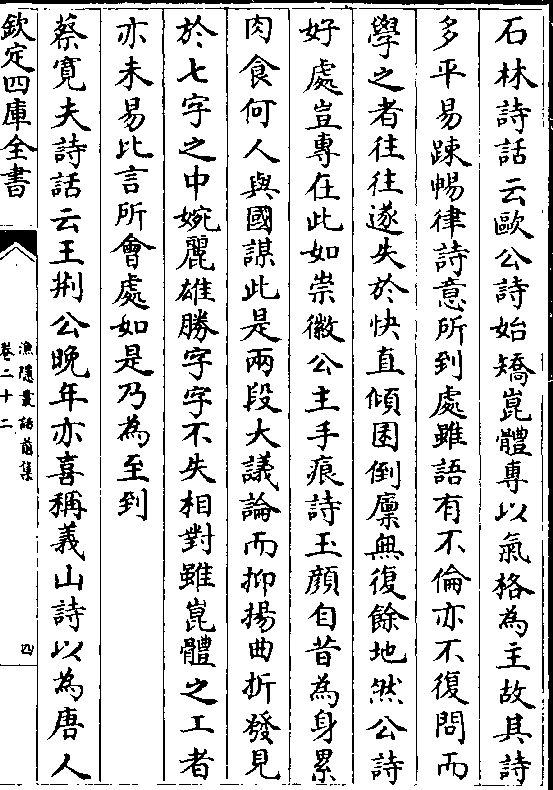 石林詩話云歐公詩始矯崑體專以氣格為主故其詩
多平易踈暢律詩意所到處雖語有不倫亦不復問而
學之者往往遂失於快直傾囷倒廩無復餘地然公詩
好處豈專在此如崇徽公主手痕詩玉顔自昔為身累
肉食何人與國謀此是兩段大議論而抑揚曲折發見
於七字之中婉麗雄勝字字不失相對雖崑體之工者
亦未易比言所會處如是乃為至到
蔡寛夫詩話云王荆公晚年亦喜稱義山詩以為唐人
欽定四庫全書
漁隱叢話前集
卷二十二
四